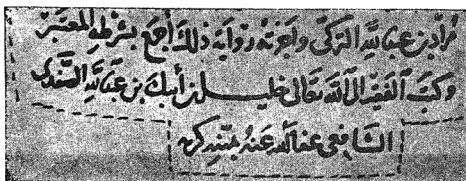 مراد بن عبد الله التركي وأجزته رواية ذلك أجمع بشرطه المعتبر
وكتب الفقير الى الله تعالى خليل بن أيبك بن عبد الله الصفدي
الشافعي عفا الله عنه بمنه وكرمه